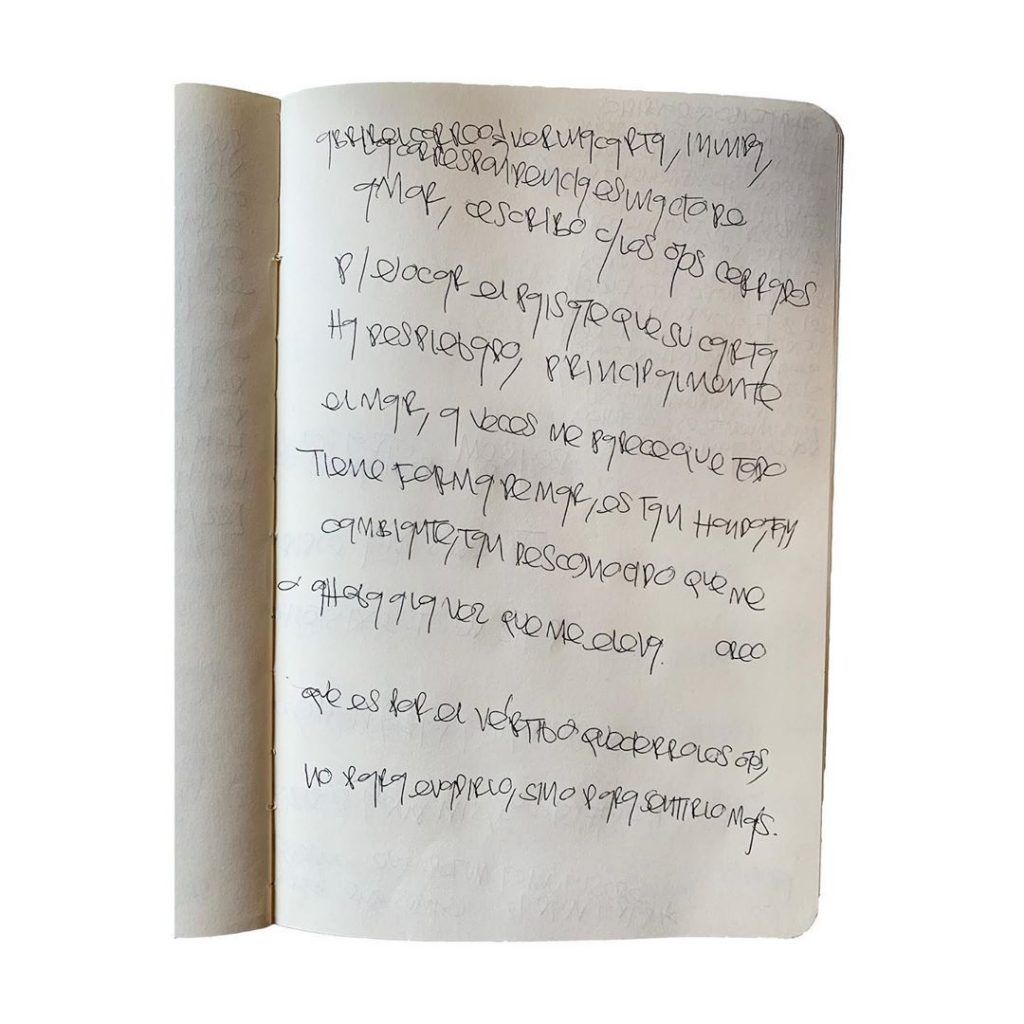 abrir el correo y ver una carta,
la correspondencia es un acto de
amar, escribo c/ los ojos cerrados
p/ evocar el paisaje que su carta
ha desplegado, principalmente
el mar, a veces me parece que todo
tiene forma de mar, es tan hondo, tan
cambiante, tan desconocido que me
ahoga a la vez que me eleva. creo
que es por el vértigo que cierro los ojos,
no para evadirlo, sino para sentirlo más.